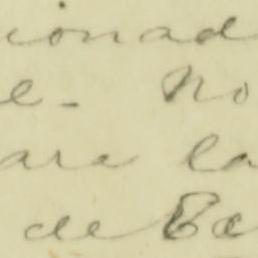 ionad
e - No
ara la
de Ba